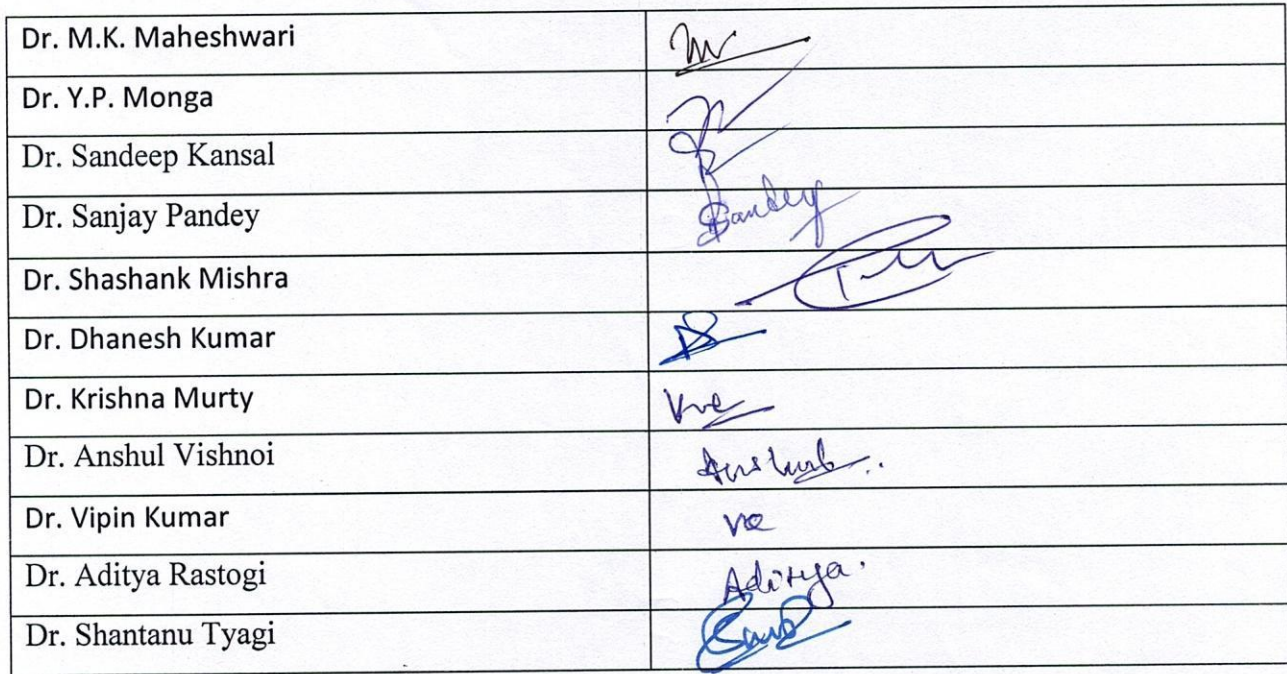 Dr. M.K. Maheshwari
Dr. Y.P. Monga
Dr. Sandeep Kansal
Dr. Sanjay Pandey Pandey
Dr. Shashank Mishra
Dr. Dhanesh Kumar
Dr. Krishna Murty
Dr. Anshul Vishnoi Anshul
Dr. Vipin Kumar
Dr. Aditya Rastogi Aditya.
Dr. Shantanu Tyagi